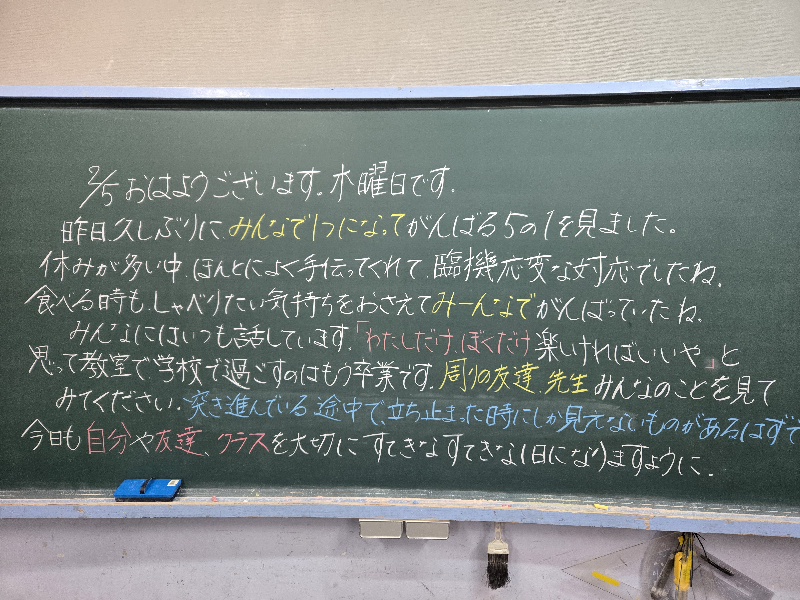 2/5 おはようございます。水曜日です。
昨日、久しぶりにみんなで1つになってがんばる5の1を見ました。
休みが多い中、ほんとによく手伝ってくれて、臨機応変な対応でしたね。
食べる時も、しゃべりたい気持ちをおさえてみーんなでがんばっていたね。
みんなにはいつも話しています。「わたしだけ、ぼくだけ楽しければいいや。」と
思って教室で学校で過ごすのはもう卒業です。周りの友達、先生みんなのことを見て
みてください。突き進んでいる途中で、立ち止まった時にしか見えないものがあるはずで
今日も自分や友達、クラスを大切にすてきなすてきな1日になりますように。